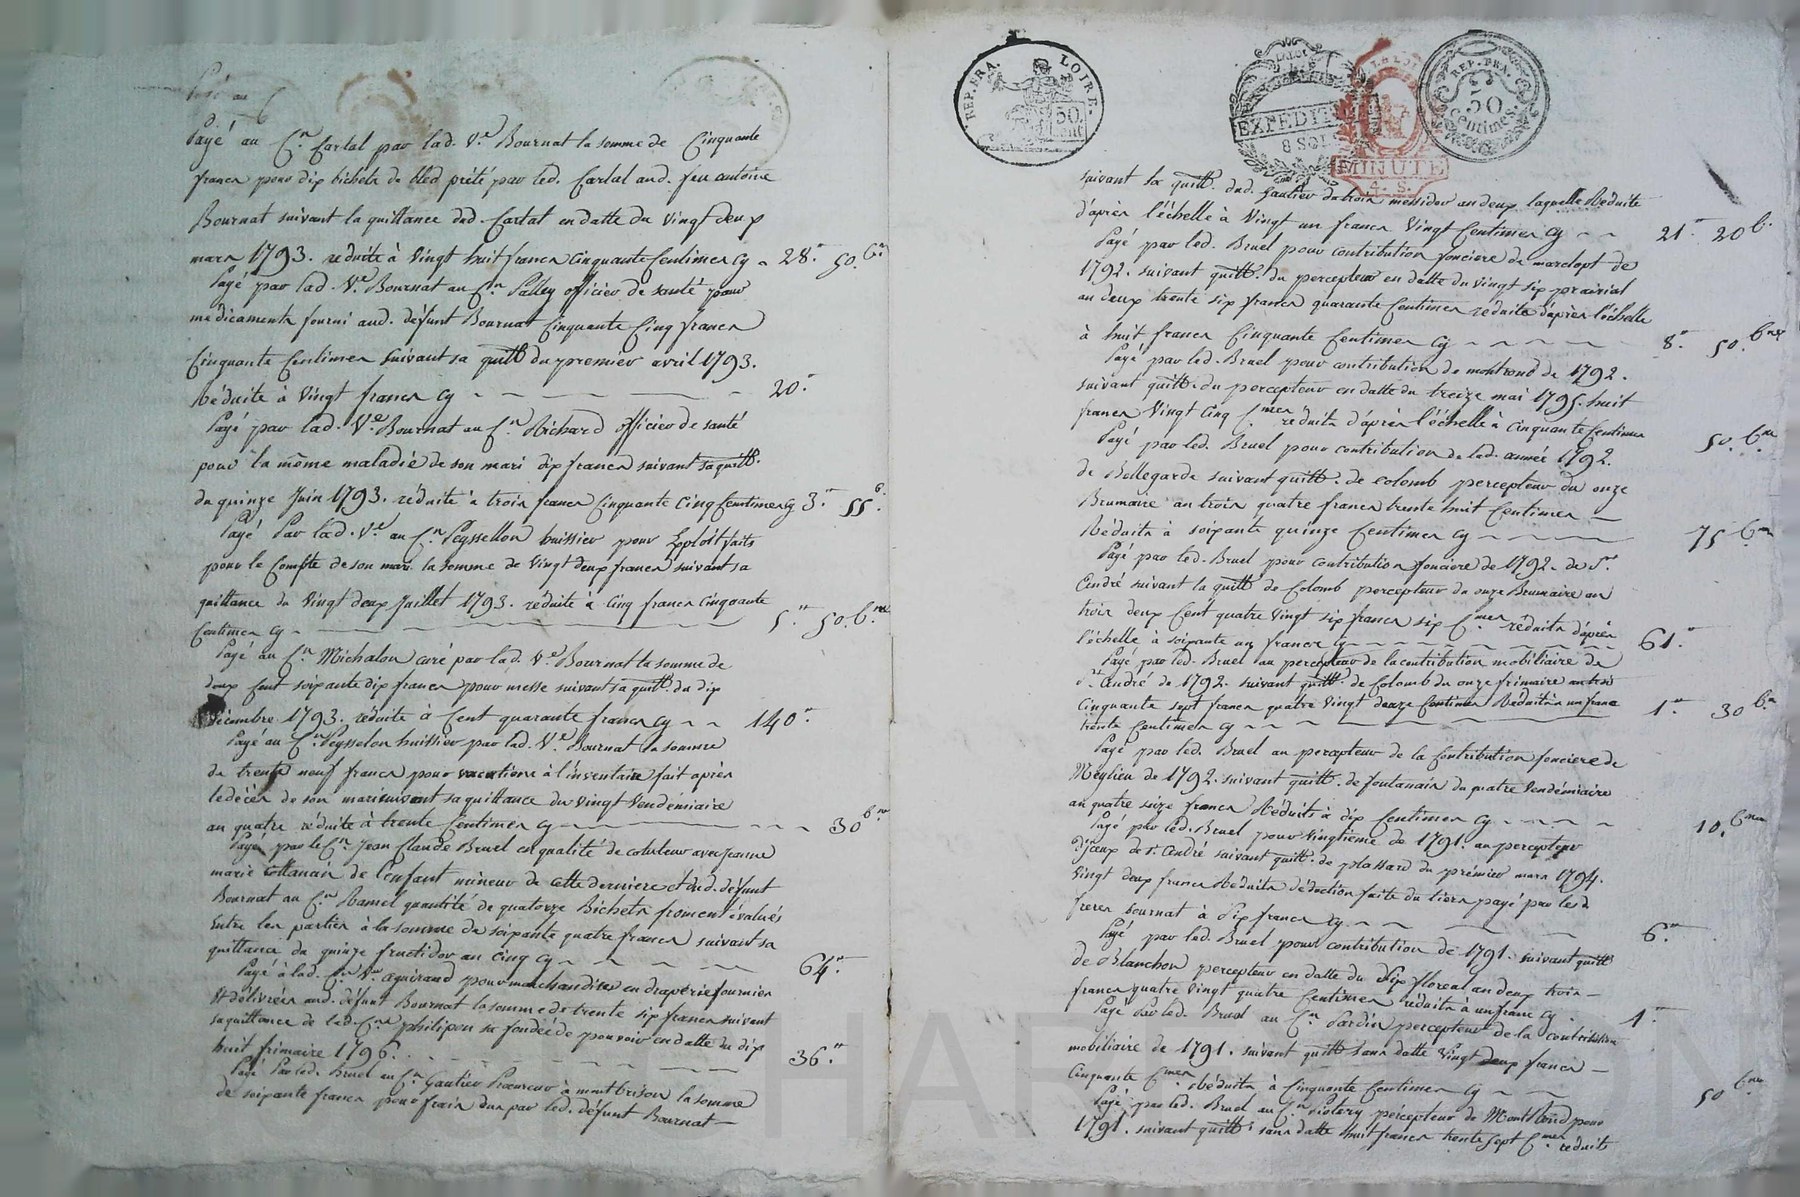 Payé au
Payé au C.n Cartal par lad. V.e Bournat la somme de Cinquante
francs pour dix bichets de bled prété par led. Cartal aud. feu antoine
Bournat suivant la quittance dud. Cartal en datte du vingt deux
mars 1793. réduite à vingt huit francs cinquante Centimes cy 28." 50.c.s
Payé par lad. V.e Bournat au C.n Palley officier de santé pour
médicaments fourni aud. défunt Bournat Cinquante Cinq francs
Cinquante Centimes suivant sa quitt.e du premier avril 1793.
Réduite à vingt francs cy 20."
Payé par lad. V.e Bournat au C.n Richard officier de santé
pour la même maladie de son mari dix francs suivant sa quitt.
du quinze Juin 1793. réduite à trois francs Cinquante Cinq Centimes cy 3." 55.c
Payé Par lad. V.e au C.n Peyssellon huissier pour Exploit faits
pour le Compte de son mari la somme de vingt deux francs suivant sa
quittance du vingt deux Juillet 1793. réduite à Cinq francs Cinquante
Centimes cy 5." 50.c.mes
Payé au C.n Michalon curé par lad. V.e Bournat la somme de
deux Cent soixante dix francs pour messe suivant sa quitt.e du dix
décembre 1793. réduite à Cent quarante francs cy 140."
Payé au C.n Peysselon huissier par lad. V.e Bournat la somme
de trente neuf francs pour vacations à l'inventaire fait après
le décès de son mari suivant sa quittance du vingt Vendémiaire
an quatre réduite à trente Centimes cy 30 c.es
Payé par le C.n Jean Claude Bruel en qualité de cotuteur avec Jeanne
marie de l'enfant mineur de cette derniere et dud. défunt
Bournat au C.n Ramel quantité de quatorze Bichets froment évalués
Entre les parties à la somme de soixante quatre francs suivant sa
quittance du quinze fructidor an cinq cy 64."
Payé à lad. V.e aguirand pour marchandises en draperie fournies
et délivrées aud. défunt Bournat la somme de trente six francs suivant
sa quittance de led. C.ne philipon sa fondée de pouvoir en datte du dix
huit frimaire 1796. 36."
Payé Par led. Bruel au C.n Gautier Procureur à montbrison la somme
de soixante francs pour frais dus par led. défunt Bournat
REP. FRA. LOIRE.
50. Cent.
EXPEDIT
8 SOLS
LA LOI
MINUTE
4. S.
REP. FRA.
50
Centimes.
suivant sa quitt. dud. Gautier du trois messidor an deux laquelle Réduite
d'après l'échelle à Vingt un francs Vingt Centimes cy 21." 20 c.
Payé par led. Bruel pour contribution fonciere de marclopt de
1792. suivant quitt.e du percepteur en datte du vingt six prairial
an deux trente six francs quarante Centimes réduite d'après l'échelle
à huit francs Cinquante Centimes cy 8." 50.c.mes
Payé par led. Bruel pour contribution de montrond de 1792.
suivant quitt.e du percepteur en datte du treize mai 1795. huit
francs Vingt Cinq C.mes réduits d'après l'échelle à Cinquante Centimes 50.c.me
Payé par led. Bruel pour contribution de lad. année 1792.
de Bellegarde suivant quitt.e de Colomb percepteur du onze
Brumaire an trois quatre francs trente huit Centimes
Réduits à soixante quinze Centimes cy 75 c.mes
Payé par led. Bruel pour contribution fonciere de 1792. de S.t
André suivant la quitt.e de Colomb percepteur du onze Brumaire an
trois deux Cent quatre Vingt six francs six C.mes réduits d'après
l'échelle à soixante un francs cy 61."
Payé par led. Bruel au percepteur de la contribution mobiliaire de
S.t André de 1792. suivant quitt.e de Colomb du onze frimaire an trois
Cinquante sept francs quatre Vingt douze Centimes Réduits à un franc
trente Centimes cy 1." 30 c.s
Payé par led. Bruel au percepteur de la contribution fonciere de
Meylieu de 1792. suivant quitt.e de du quatre Vendémiaire
an quatre seize francs Réduits à dix Centimes cy 10. c.mes
Payé par led. Bruel pour Vingtieme de 1791. au percepteur
de S.t André suivant quitt.e de plassard du prémier mars 1794.
Vingt deux francs Réduits déduction faite du tiers payé par les d.
freres Bournat à six francs cy 6."
Payé par led. Bruel pour contribution de 1791. suivant quitt.e
de Blanchon percepteur en datte du dix floreal an deux trois
francs quatre Vingt quatre Centimes réduits à un franc cy 1."
Payé Par led. Bruel au C.n Pardin percepteur de la contribution
mobiliaire de 1791. suivant quitt.e sans datte Vingt deux francs
Cinquante C.mes Réduits à Cinquante Centimes cy 50 c.mes
Payé par led. Bruel au C.n percepteur de Montrond pour
1791. suivant quitt.e sans datte huit francs trente sept C.mes réduits